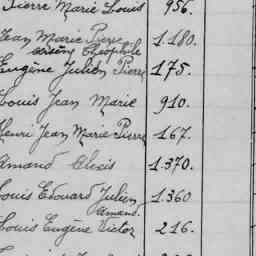 Pierre Marie Louis 956.
Jean Marie Pierre 1.180.
Théophile
Eugène Julien Pierre 175.
Louis Jean Marie 910.
Henri Jean Marie Pierre 167.
Amand Alexis 1.370.
Louis Edouard Julien 1.360
Amand.
Louis Eugène Victor 216.